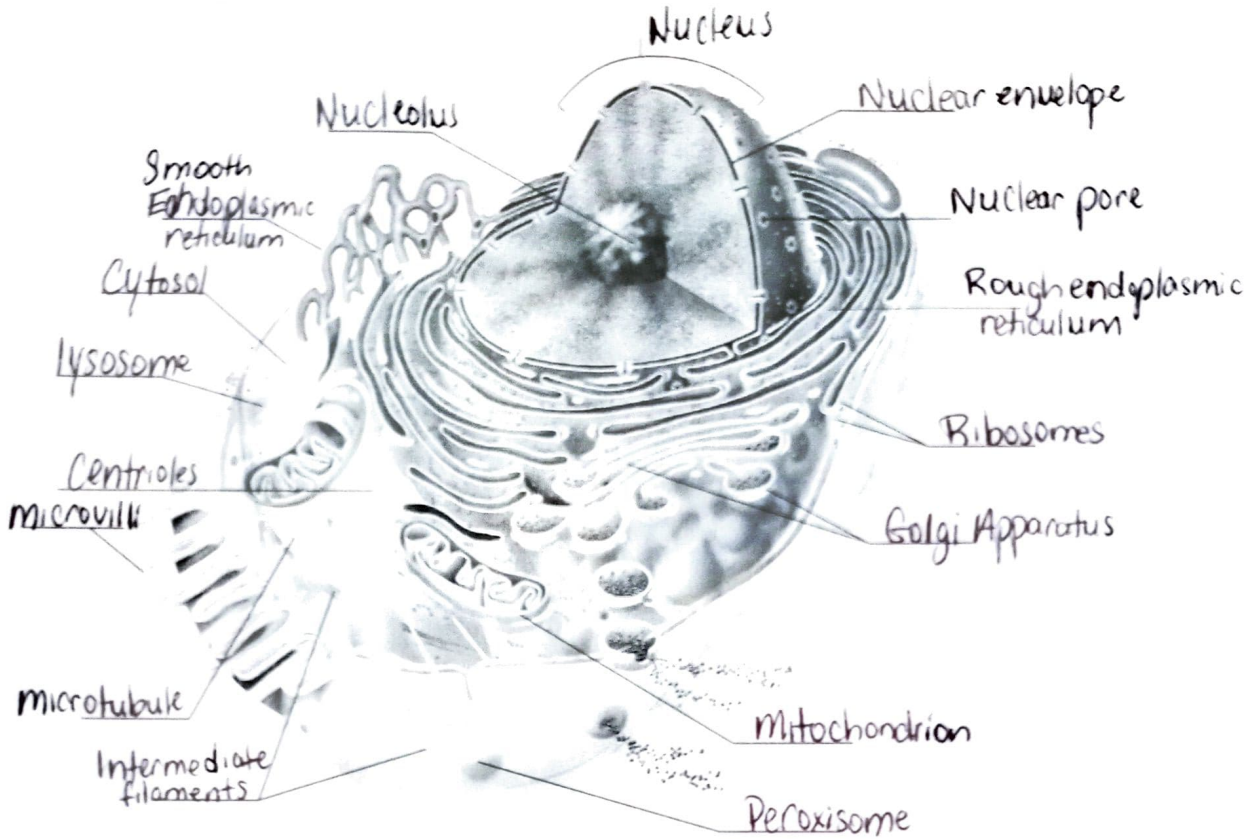 Nucleus
Nucleolus
Nuclear envelope
Smooth
Endoplasmic
reticulum
Nuclear pore
Cytosol
Rough endoplasmic
reticulum
lysosome
Ribosomes
Centrioles
Microvilli
Golgi Apparatus
Microtubule
Mitochondrion
Intermediate
filaments
Peroxisome